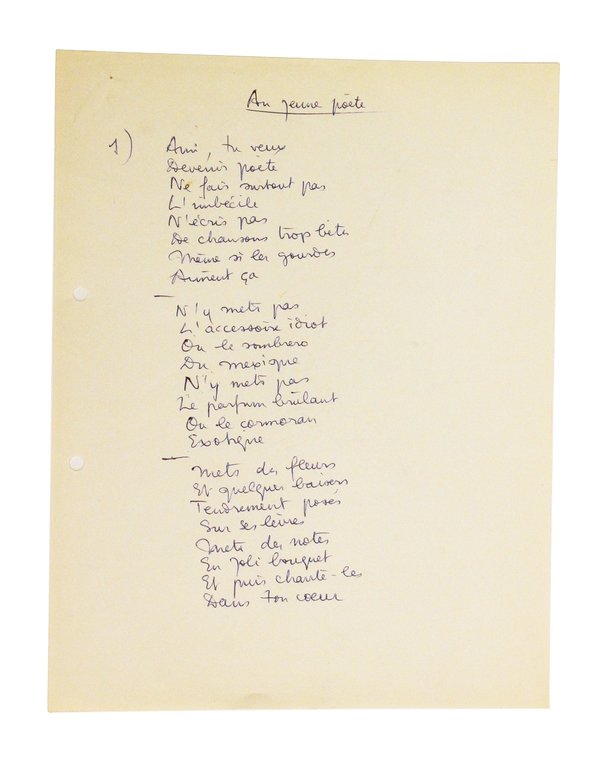 Au jeune poète
1)
Ami, tu veux
Devenir poète
Ne fais surtout pas
L'imbécile
N'écris pas
De chansons trop bêtes
Même si les gourdes
Aiment ça
N'y mets pas
L'accessoire idiot
Ou le sombrero
Du mexique
N'y mets pas
Le parfum brûlant
Ou le cormoran
Exotique
Mets des fleurs
Et quelques baisers
Tendrement posés
Sur ses lèvres
Mets des notes
En joli bouquet
Et puis chante-les
Dans ton coeur